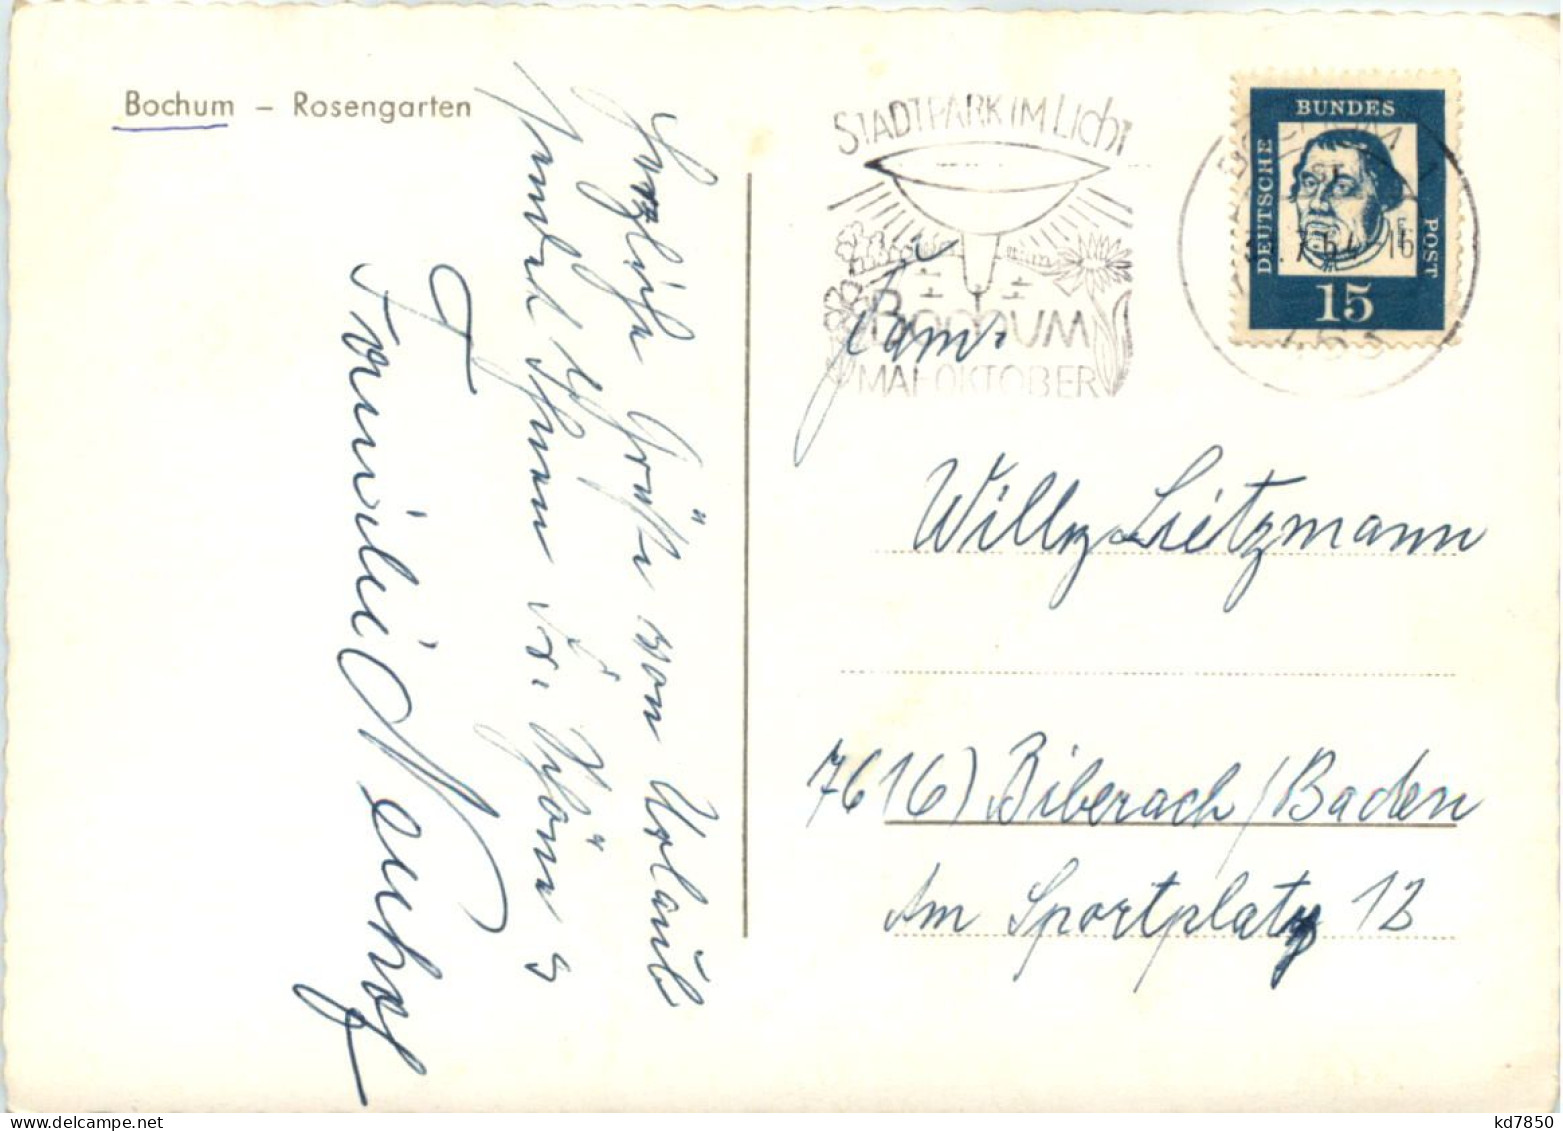 Bochum – Rosengarten
Herzliche Grüße von Urlaub
sendet Ihnen
Familie Neuhof
STADTPARK IM LICHT
BOCHUM
MAI-OKTOBER
BUNDES
DEUTSCHE
POST
15
Fam.
Willy Lietzmann
7616) Biberach/Baden
Am Sportplatz 12
kd7850